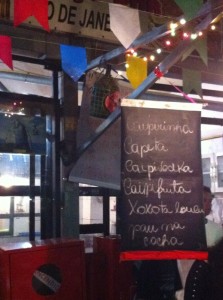 O DE JANE
Caipirinha
Capeta
Caipivodka
Caipifruta
Xoxota louca
pau na
coxa